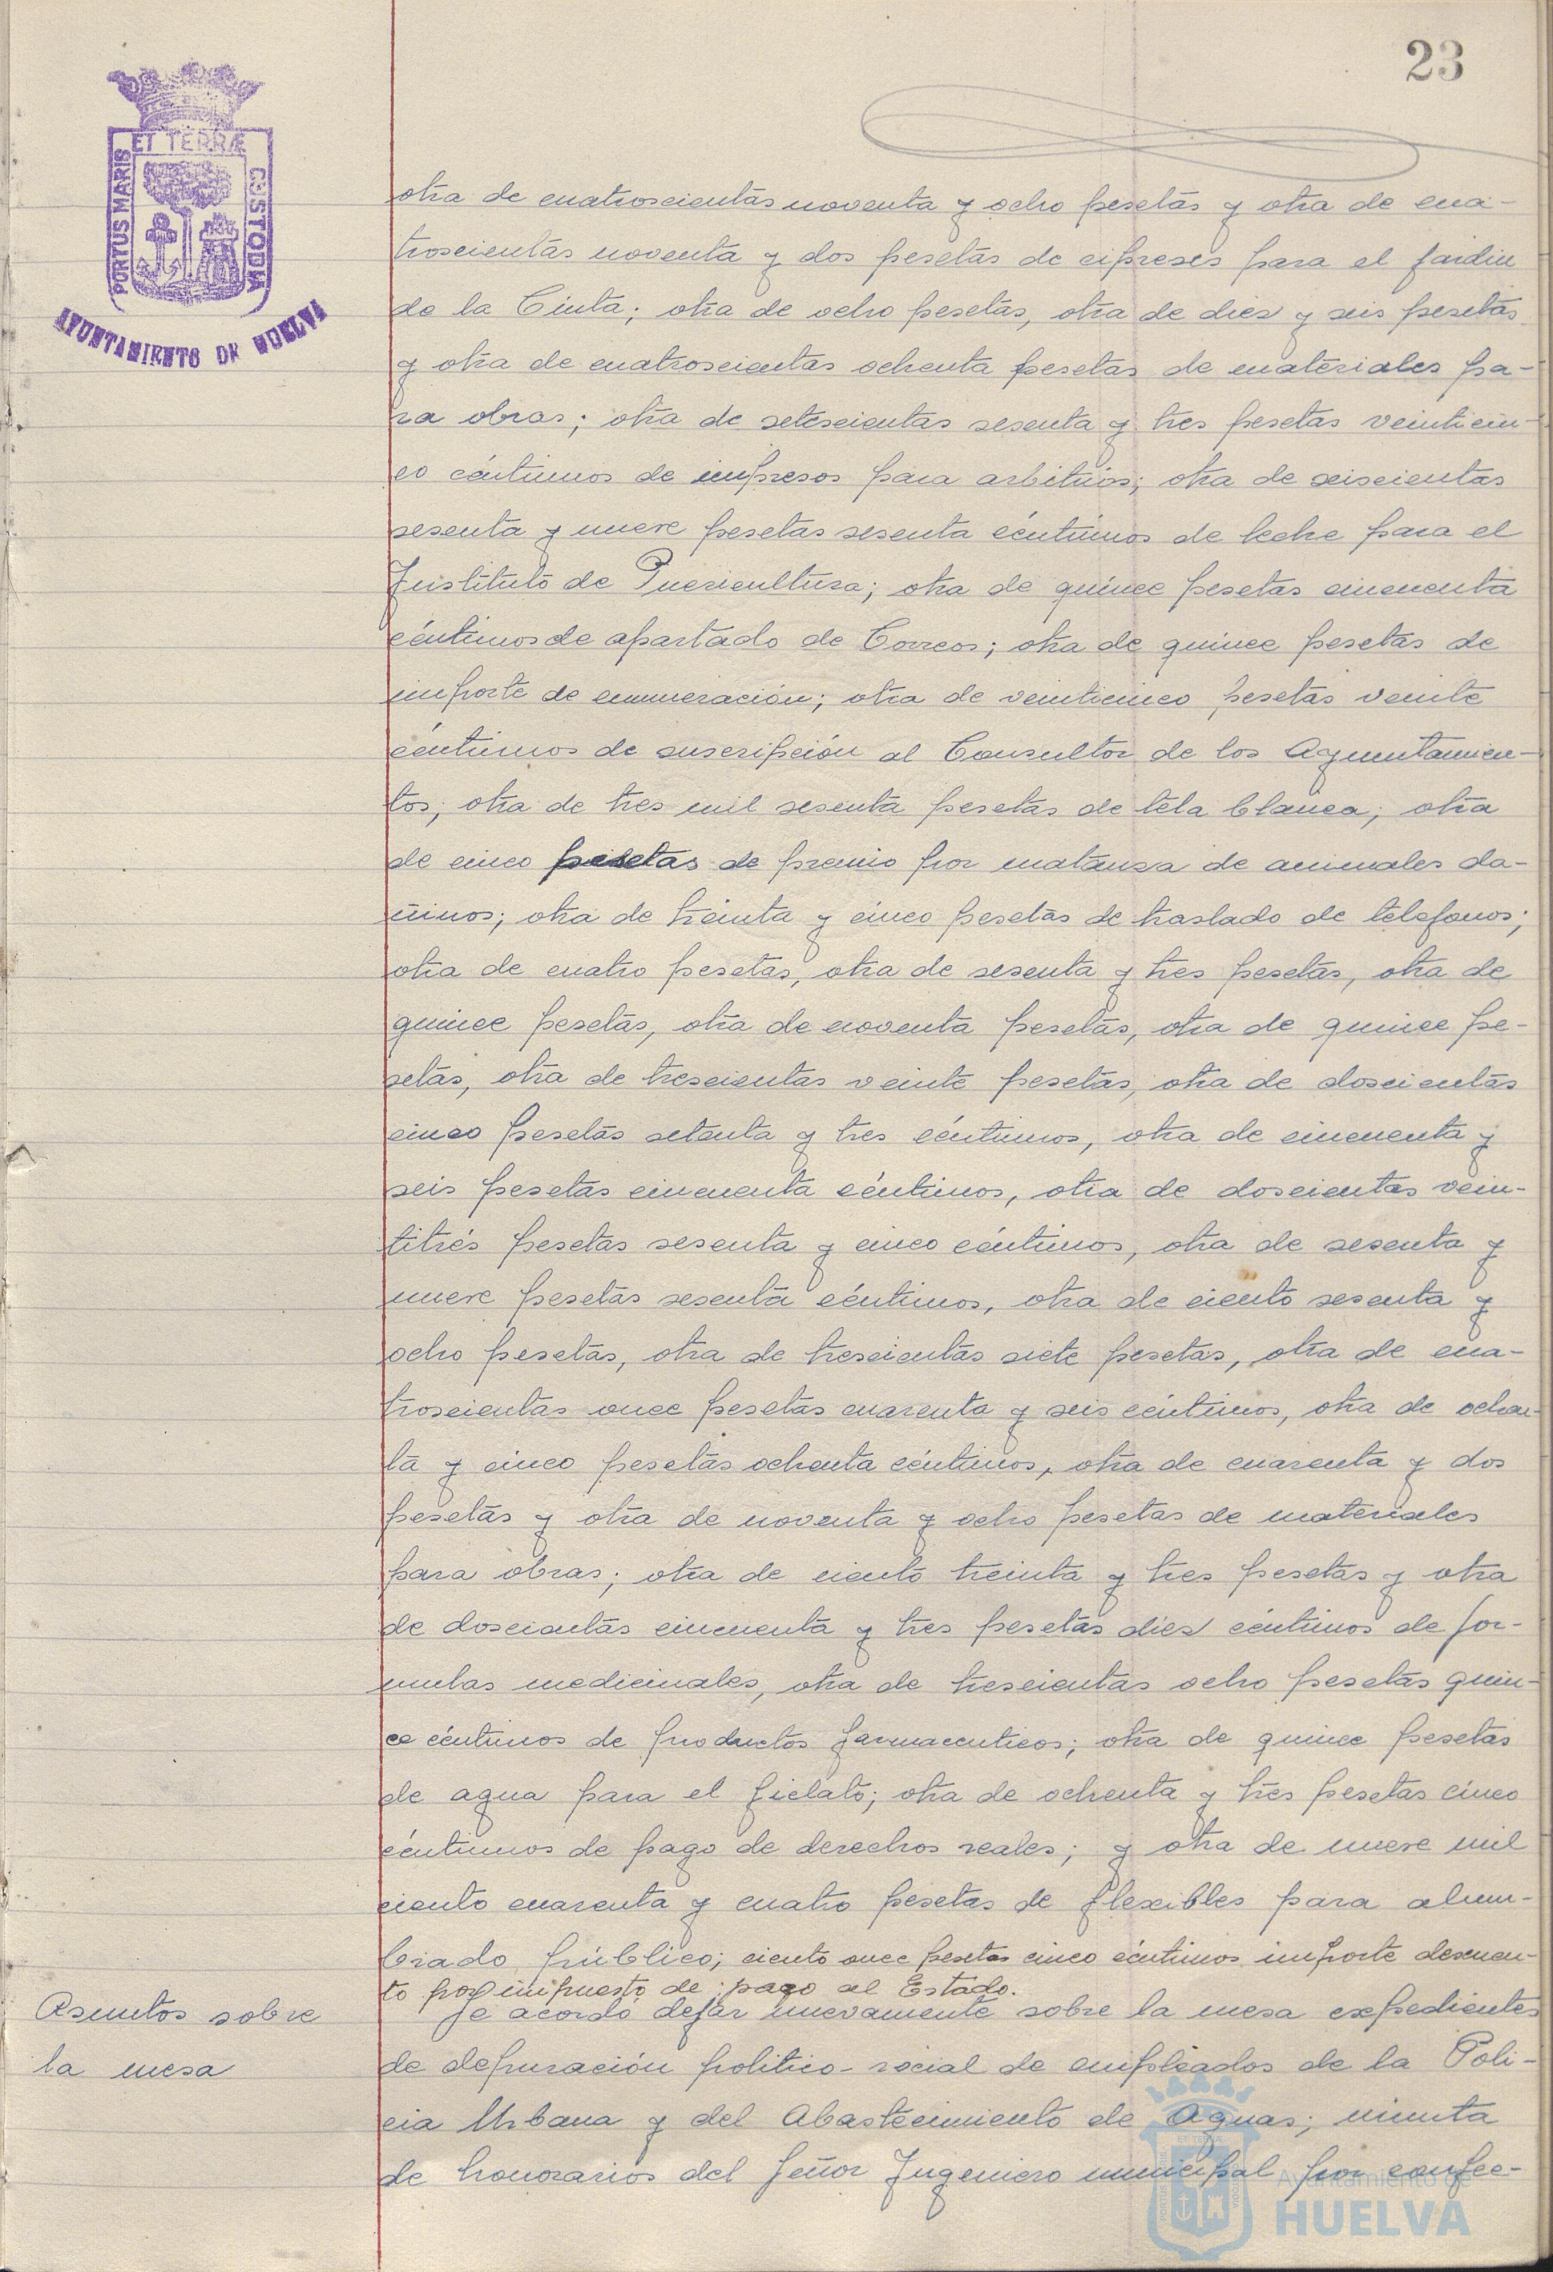 23
ET TERRÆ
PORTUS MARIS
CUSTODIA
AYUNTAMIENTO DE HUELVA
otra de cuatroscientas noventa y ocho pesetas y otra de cua-
troscientas noventa y dos pesetas de cipreses para el jardin
de la Cinta; otra de ocho pesetas, otra de diez y seis pesetas
y otra de cuatroscientas ochenta pesetas de materiales pa-
ra obras; otra de setescientas sesenta y tres pesetas veinticin-
co céntimos de impresos para arbitrios; otra de seiscientas
sesenta y nueve pesetas sesenta céntimos de leche para el
Instituto de Puericultura; otra de quince pesetas cincuenta
céntimos de apartado de Correos; otra de quince pesetas de
importe de enumeración; otra de veinticinco pesetas veinte
céntimos de suscripción al Consultor de los Ayuntamien-
tos; otra de tres mil sesenta pesetas de tela blanca; otra
de cinco pesetas de premio por matanza de animales da-
ñinos; otra de treinta y cinco pesetas de traslado de telefonos;
otra de cuatro pesetas, otra de sesenta y tres pesetas, otra de
quince pesetas, otra de noventa pesetas, otra de quince pe-
setas, otra de trescientas veinte pesetas, otra de doscientas
cinco pesetas setenta y tres céntimos, otra de cincuenta y
seis pesetas cincuenta céntimos, otra de doscientas vein-
titrés pesetas sesenta y cinco céntimos, otra de sesenta y
nueve pesetas sesenta céntimos, otra de ciento sesenta y
ocho pesetas, otra de trescientas siete pesetas, otra de cua-
troscientas once pesetas cuarenta y seis céntimos, otra de ochen-
ta y cinco pesetas ochenta céntimos, otra de cuarenta y dos
pesetas y otra de noventa y ocho pesetas de materiales
para obras; otra de ciento treinta y tres pesetas y otra
de doscientas cincuenta y tres pesetas diez céntimos de for-
mulas medicinales, otra de trescientas ocho pesetas quin-
ce céntimos de productos farmaceuticos; otra de quince pesetas
de agua para el fielato; otra de ochenta y tres pesetas cinco
céntimos de pago de derechos reales; y otra de nueve mil
ciento cuarenta y cuatro pesetas de flexibles para alum-
brado público; ciento once pesetas cinco céntimos importe descuen-
to por impuesto de pago al Estado.
Asuntos sobre
la mesa
Se acordó dejar nuevamente sobre la mesa expedientes
de depuración politico-social de empleados de la Poli-
cia Urbana y del Abastecimiento de Aguas; minuta
de honorarios del Señor Ingeniero municipal por confec-
Ayuntamiento de
HUELVA